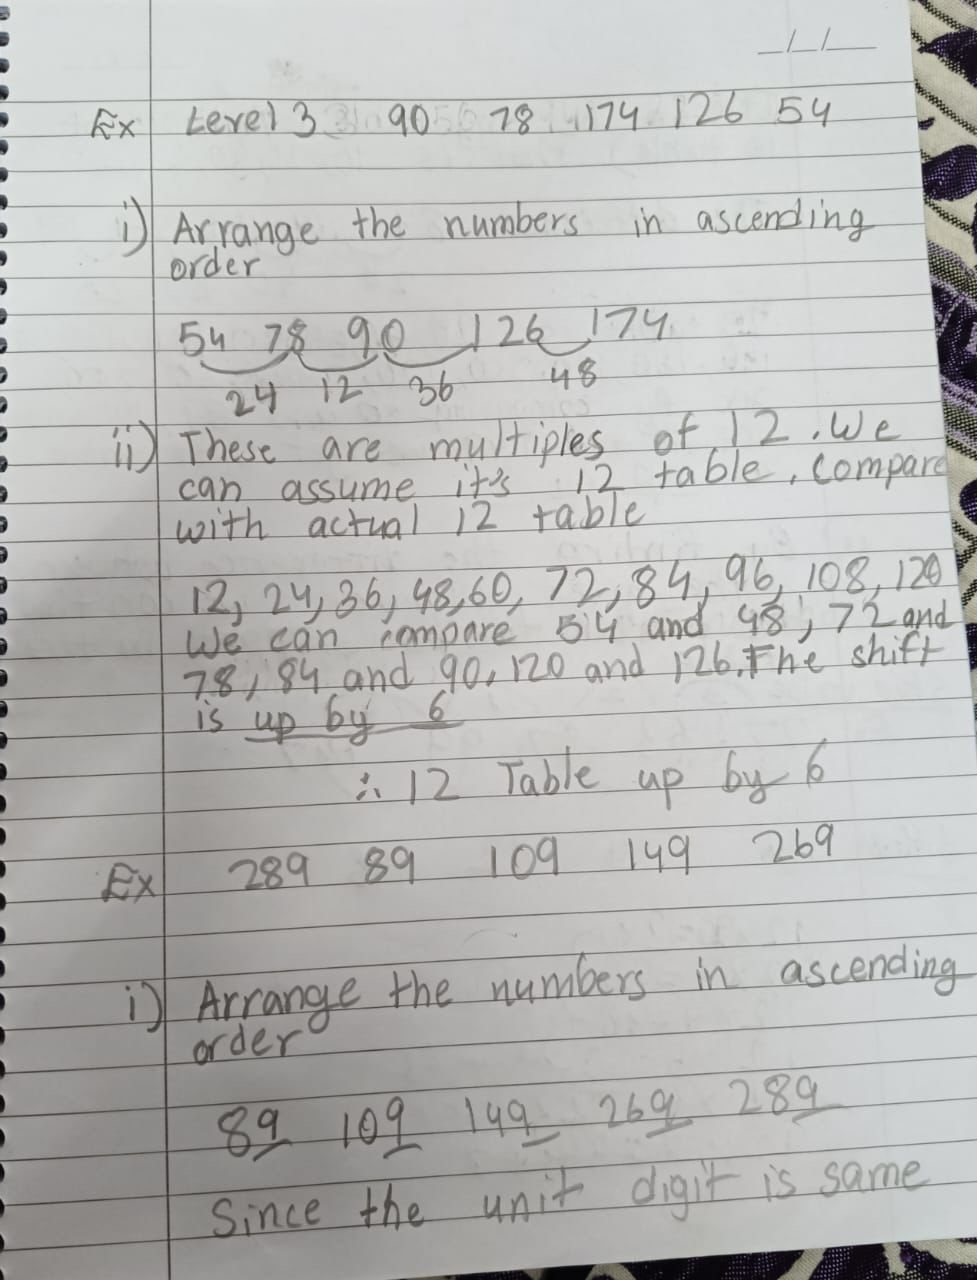 _/_/_
Ex Level 3 90 78 174 126 54
i) Arrange the numbers in ascending
order
54 78 90 126 174
24 12 36 48
ii) These are multiples of 12. We
can assume it's 12 table. Compare
with actual 12 table
12, 24, 36, 48, 60, 72, 84, 96, 108, 120
We can compare 54 and 48, 72 and
78, 84 and 90, 120 and 126. The shift
is up by 6
∴ 12 Table up by 6
Ex 289 89 109 149 269
i) Arrange the numbers in ascending
order
89 109 149 269 289
Since the unit digit is same